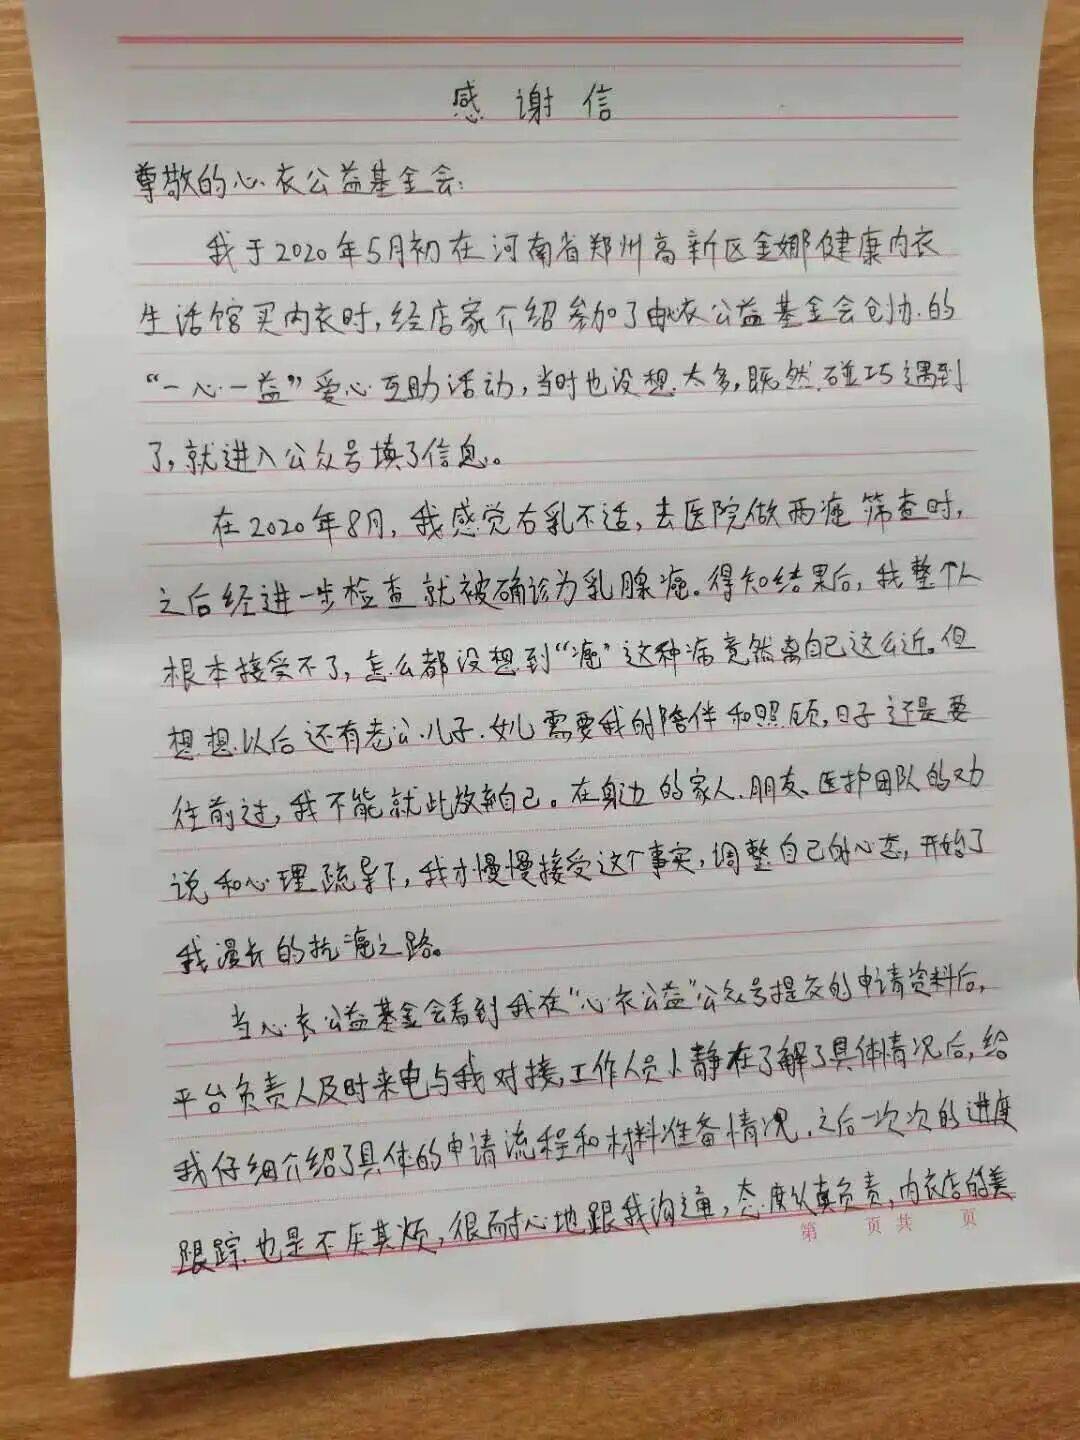 感谢信
尊敬的心衣公益基金会:
我于2020年5月初在河南省郑州高新区金娜健康内衣
生活馆买内衣时,经店家介绍参加了由心衣公益基金会创办的
“一心一益”爱心互助活动,当时也没想太多,既然碰巧遇到
了,就进入公众号填了信息。
在2020年8月,我感觉右乳不适,去医院做两癌筛查时,
之后经进一步检查就被确诊为乳腺癌。得知结果后,我整个人
根本接受不了,怎么都没想到“癌”这种病竟然离自己这么近。但
想想以后还有老公.儿子.女儿需要我的陪伴和照顾,日子还是要
往前过,我不能就此放弃自己。在身边的家人.朋友、医护团队的劝
说和心理疏导下,我才慢慢接受这个事实,调整自己的心态,开始了
我漫长的抗癌之路。
当心衣公益基金会看到我在“心衣公益”公众号提交的申请资料后,
平台负责人及时来电与我对接,工作人员小静在了解了具体情况后,给
我仔细介绍了具体的申请流程和材料准备情况,之后一次次的进度
跟踪也是不厌其烦,很耐心地跟我沟通,态度认真负责,内衣店的美
第 页 共 页